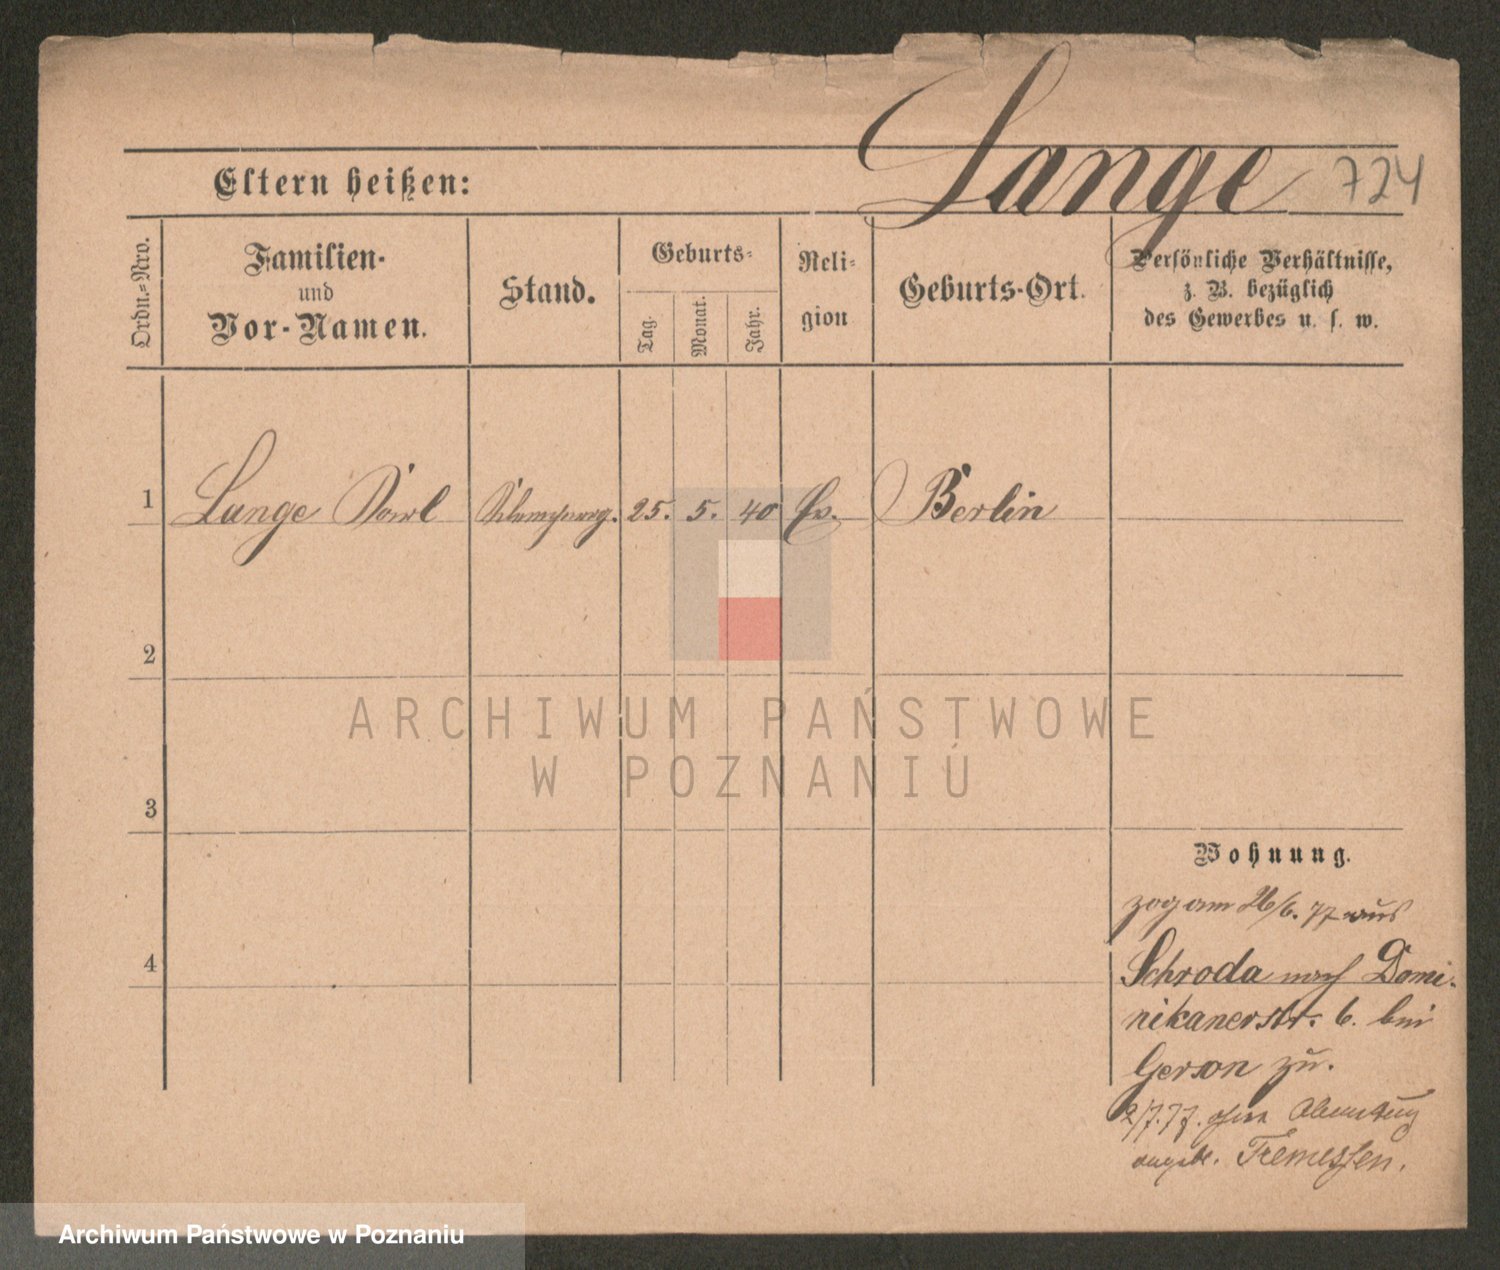 Lange 724
Eltern heißen:
Ordn.=Nro.
Familien-
und
Vor-Namen.
Stand.
Geburts-
Tag.
Monat.
Jahr.
Reli-
gion
Geburts-Ort.
Persönliche Verhältnisse,
z. B. bezüglich
des Gewerbes u. s. w.
1 Lange Karl 25. 5. 40 Ev. Berlin
2
3
4
ARCHIWUM PAŃSTWOWE
W POZNANIU
Wohnung.
zog am 26/6. 77 aus
Schroda nach Domi-
nikanerstr. 6. bei
Gerson zu.
2/7.77. ohne
angebl. Tremessen.
Archiwum Państwowe w Poznaniu